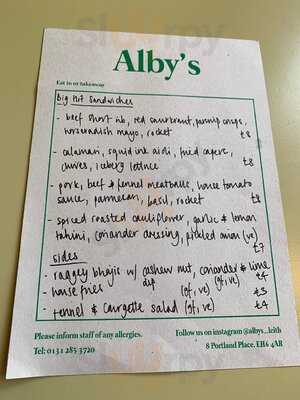 Alby's
Eat in or takeaway
Big Hot Sandwiches
- beef short rib, red sauerkraut, parsnip crisps,
horseradish mayo, rocket £8
- calamari, squid ink aioli, fried capers,
chives, iceberg lettuce £8
- pork, beef & fennel meatballs, house tomato
sauce, parmesan, basil, rocket £8
- spiced roasted cauliflower, garlic & lemon
tahini, coriander dressing, pickled onion (ve)
£7
Sides
- raggey bhajis w/ cashew nut, coriander & lime
dip (gf, ve) £4
- house fries (gf, ve) £3
- fennel & courgette salad (gf, ve) £4
Please inform staff of any allergies.
Tel: 0131 285 3720
Follow us on instagram @albys_leith
8 Portland Place, EH6 4AR